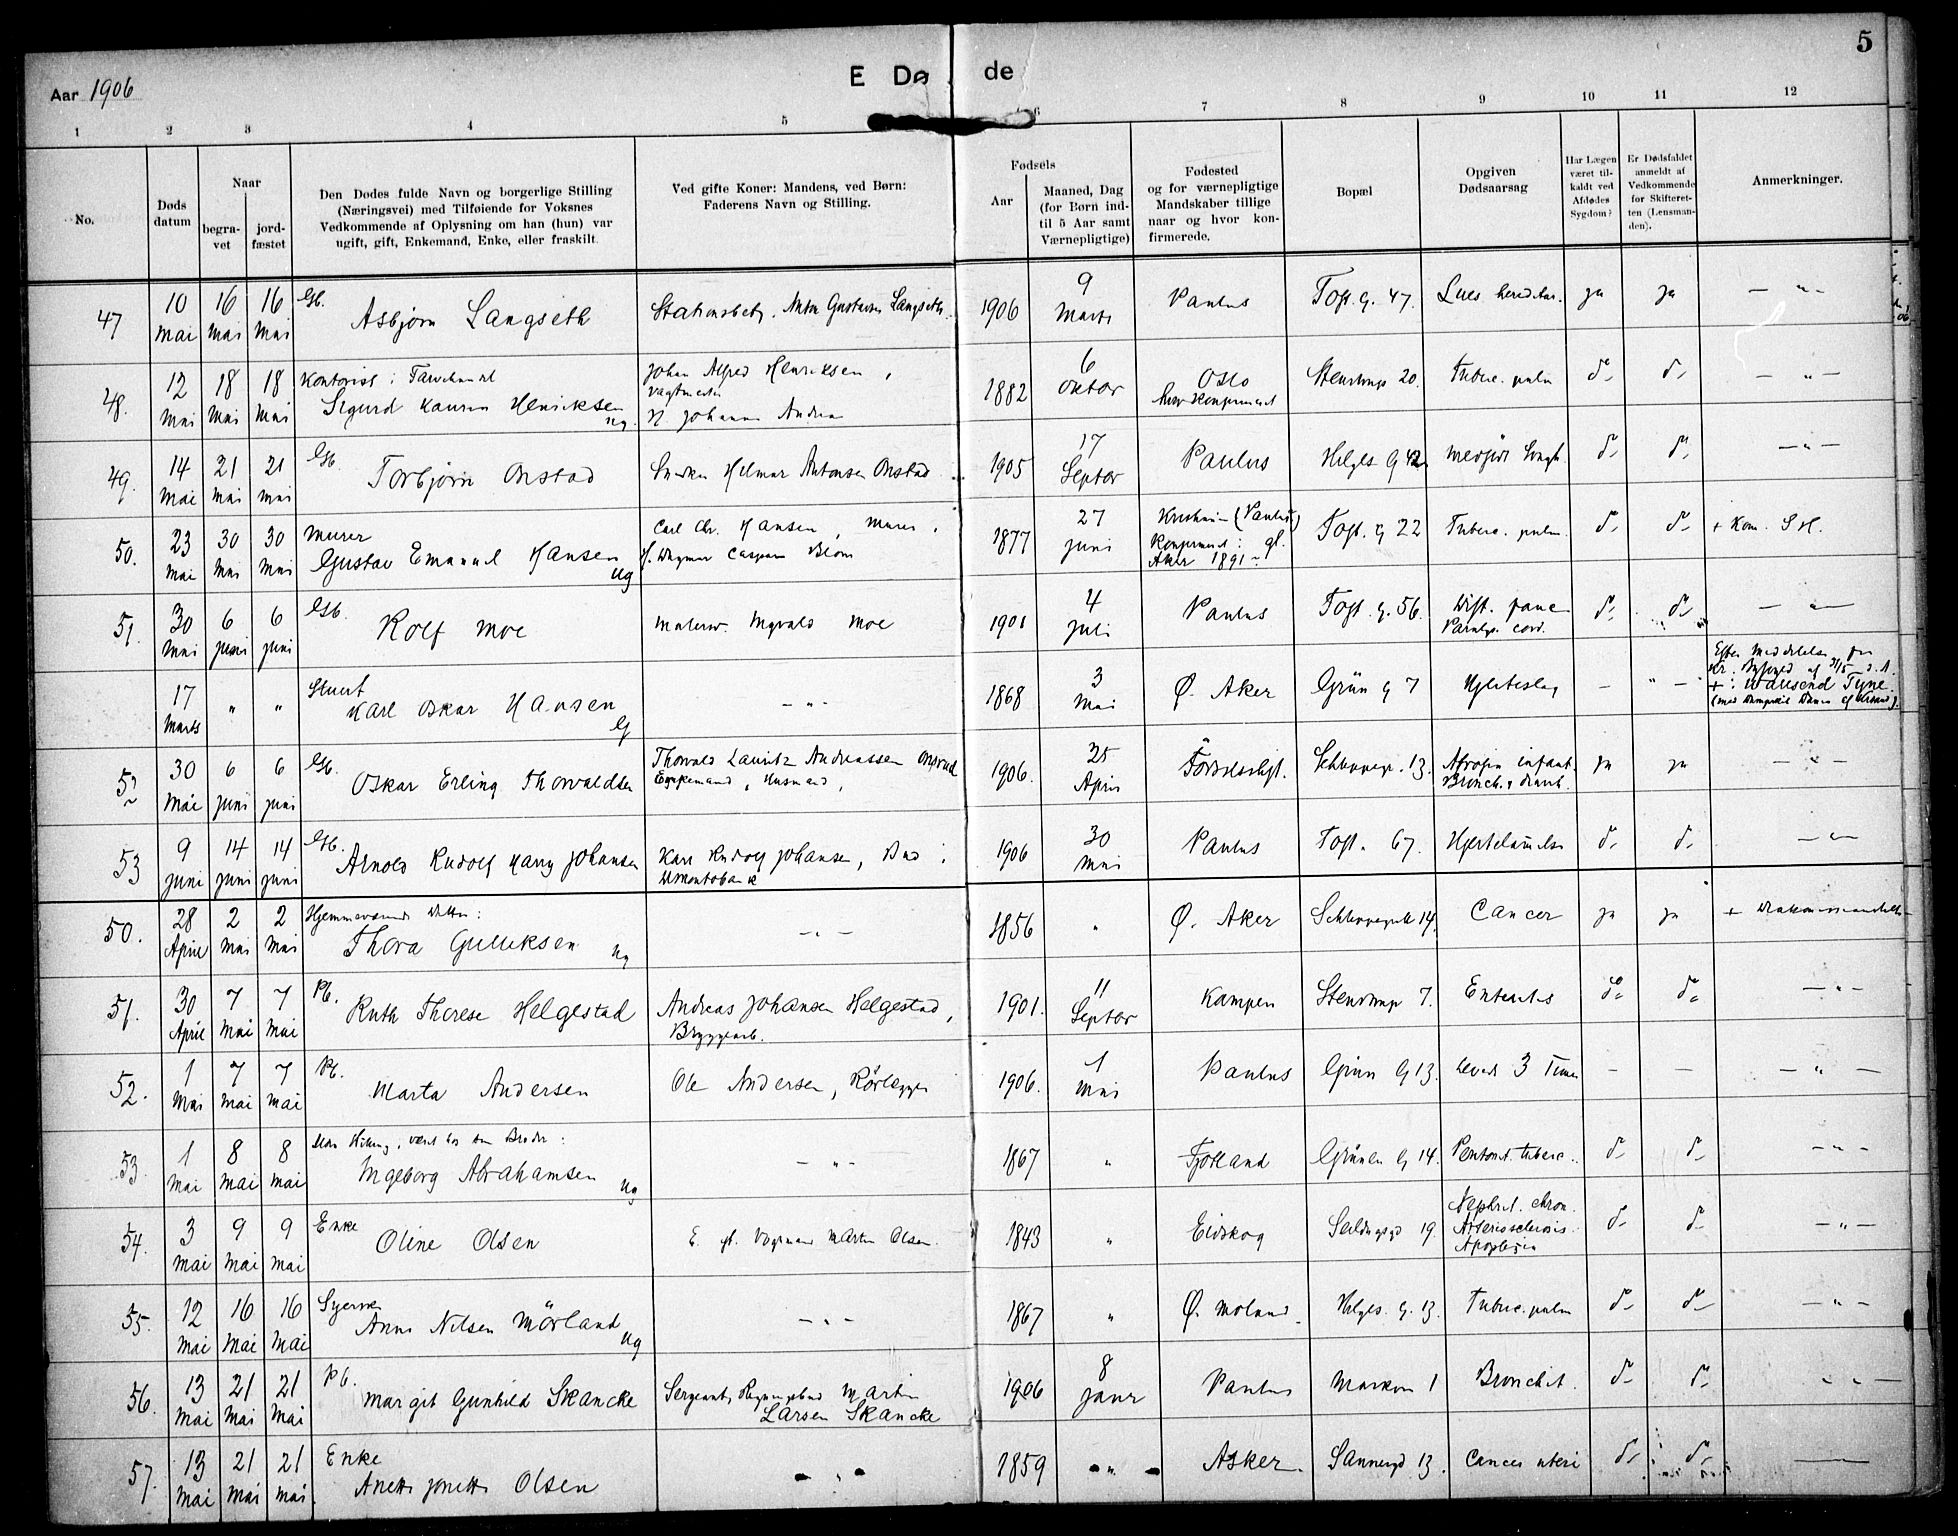 5
Aar 1906
E Dø de
1 2 3 4 5 6 7 8 9 10 11 12
No.
Døds datum
Naar
begra-vet
jord-fæstet
Den Dødes fulde Navn og borgerlige Stilling
(Næringsvei) med Tilføiende for Voksnes
Vedkommende af Oplysning om han (hun) var
ugift, gift, Enkemand, Enke, eller fraskilt.
Ved gifte Koner: Mandens, ved Børn:
Faderens Navn og Stilling.
Fødsels
Aar
Maaned, Dag
(for Børn ind-
til 5 Aar samt
Værnepligtige)
Fødested
og for værnepligtige
Mandskaber tillige
naar og hvor kon-
firmerede.
Bopæl
Opgiven
Dødsaarsag
Har Lægen
været til-
kaldt ved
Afdødes
Sygdom?
Er Dødsfaldet
anmeldt af
Vedkommende
for Skifteret-
ten (Lensman-
den).
Anmerkninger.
47 10 Mai 16 Mai 16 Mai Gb. Asbjørn Langseth Stationsbetj. Anton Gustavsen Langseth. 1906 9 Marts Paulus Toft. G. 47. Lues heredita. ja ja — " —
48. 12 Mai 18 Mai 18 Mai Kontorist i
Sigurd Henriksen ug. Johan Alfred Henriksen, Vagtmester
H. Johanne Andrea 1882 6 Oktbr Oslo Stenstrups 20. Tuberc. pulm do do — " —
49. 14 Mai 21 Mai 21 Mai Gb. Torbjørn Onstad Snedker Hilmar Antonsen Onstad 1905 17 Septbr Paulus Helges. G 42 do do — " —
50. 23 Mai 30 Mai 30 Mai Murer
Gustav Emanuel Hansen ug Carl Chr. Hansen, Murer. 1877 27 juni Kristiania (Paulus)
Konfirmeret i gl.
Aker 1891 Toft. G 22 Tuberc. pulm. do do
51. 30 Mai 6 juni 6 juni Gb. Rolf Moe Malersv. Moe 1901 4 juli Paulus Toft. G. 56. do do — " —
17 Marts " " Stuert
Karl Oskar Hansen G — " — 1868 3 Mai Ø. Aker Grün G 7 Hjerteslag — " — Efter meddelelse fra
+ i Wallsend Tyne
52 30 Mai 6 juni 6 juni Gb. Oskar Erling Thorvaldsen Thorvald Lauritz Andreassen
Enkemand, Husmand, 1906. 25 April Födselsstift. Schleppegr. 13. Atrofia infant.
Bronch. ja ja — " —
53 9 juni 14 juni 14 juni Gb. Arnold Rudolf Harry Johansen Karl Rudolf Johansen, Bud i 1906 30 Mai Paulus Toft. 67. Hjertelammelse do do — " —
50. 28 April 2 Mai 2 Mai Hjemmeværende Datter:
Thora Gulliksen ug — " — 1856 " Ø. Aker Schleppegrells 14. Cancer ja ja
51. 30 April 7 Mai 7 Mai Pb. Ruth Therese Helgestad Andreas Johansen Helgestad,
Bryggearb. 1901. 11 Septbr Kampen Stenstrup 7. Enteritis do do — " —
52. 1 Mai 7 Mai 7 Mai Pb. Marta Andersen Ole Andersen, Rørlægger 1906. 1 Mai Paulus Grün G 13. Levede 3 Timer — — — " —
53. 1 Mai 8 Mai 8 Mai Uden Stilling, været hos sin Broder:
Ingeborg Abrahamsen ug — " — 1867 " Fjotland Grüner G 14. Peritonit. tuberc. do do — " —
54. 3 Mai 9 Mai 9 Mai Enke Oline Olsen E. ef. Vognmand Martin Olsen. 1843 " Eidskog Seilduksgd 19. Nephrit. chron.
Arteriosclerosis.
Apoplexia do do — " —
55. 12 Mai 16 Mai 16 Mai Syerske
Anne Nilsen Mörland ug — " — 1867 " Ø. Moland Helges. G. 13. Tuberc. pulm do do — " —
56. 13 Mai 21 Mai 21 Mai Pb. Margit Gunhild Skancke Sergeant, Martin
Larsen Skancke 1906 8 Janr Paulus Markvn 1 Bronchit. do do — " —
57. 13 Mai 21 Mai 21 Mai Enke
Anette Jonette Olsen — " — 1859 — " — Asker Sannergd 13. Cancer uteri do do —